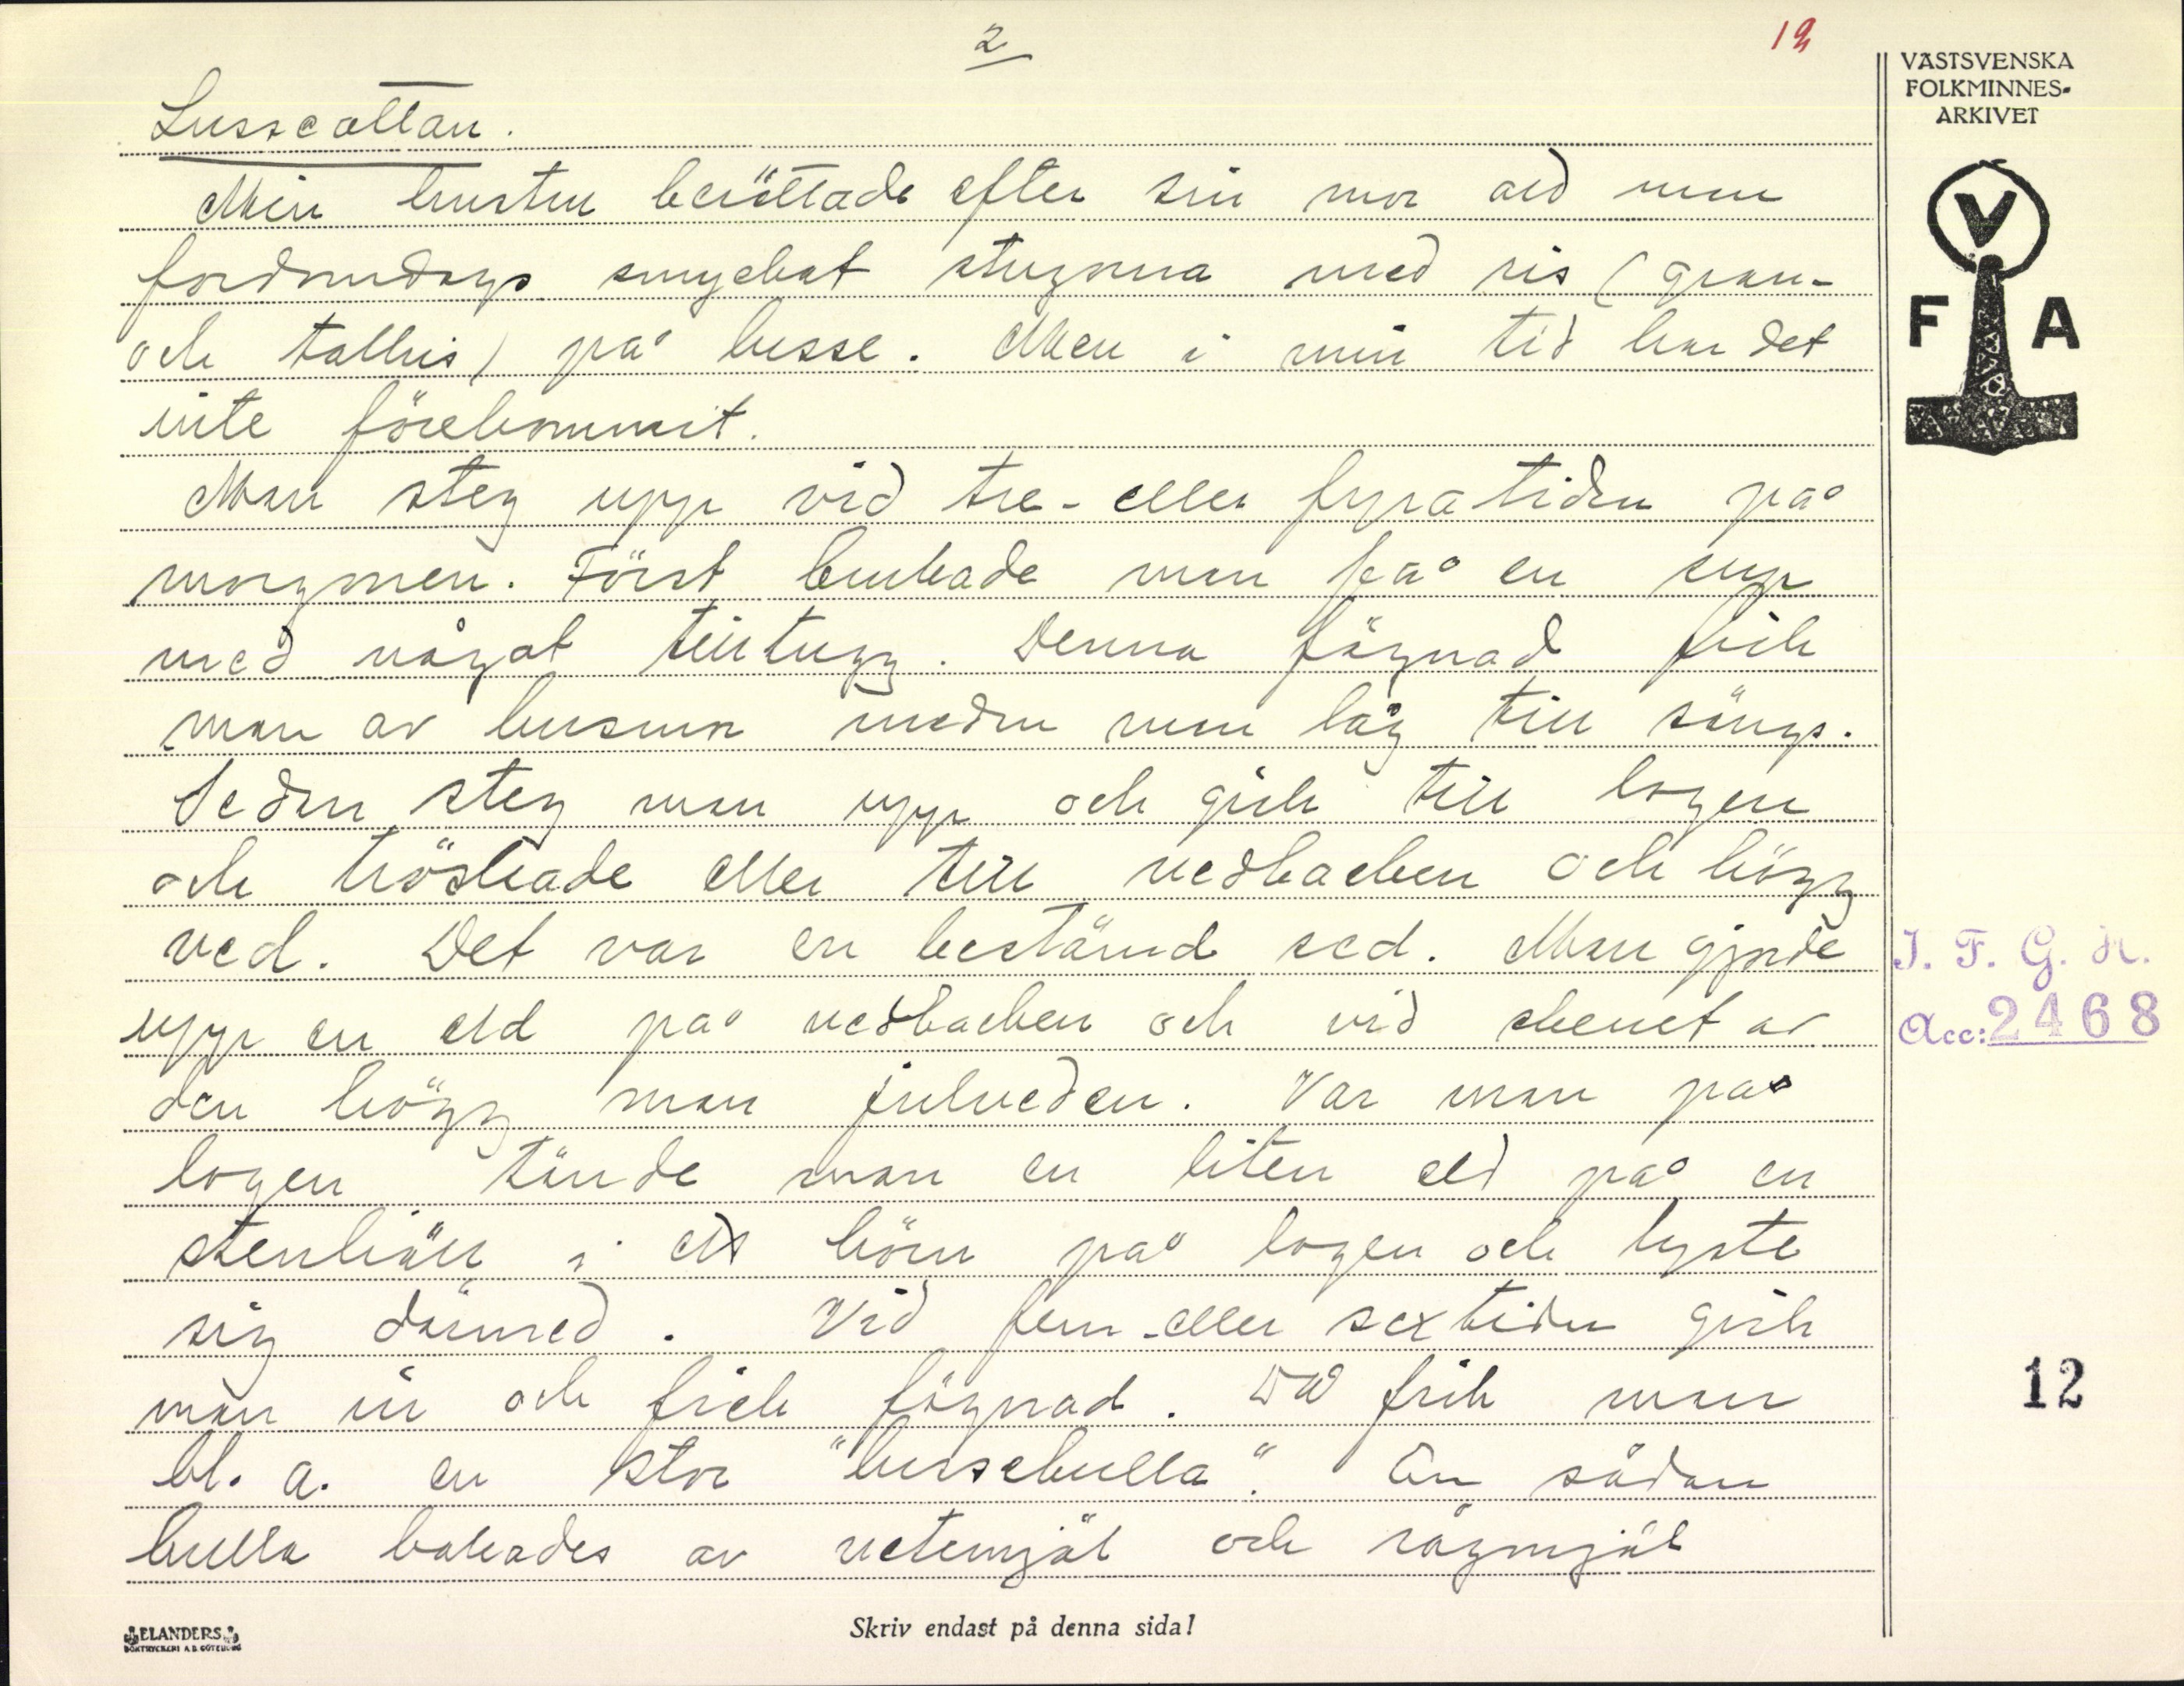 2
12
VÄSTSVENSKA
FOLKMINNES-
ARKIVET
V
F A
Lusseottan.
Min hustru berättade efter sin mor att man
fordomdags smyckat stugorna med ris (gran-
och tallris) på lusse. Men i min tid har det
inte förekommit.
Man steg upp vid tre- eller fyratiden på
morgonen. Först brukade man få en sup
med något tilltugg. Denna fägnad fick
man av husmor medan man låg till sängs.
Sedan steg man upp och gick till logen
och tröskade eller till vedbacken och högg
ved. Det var en bestämd sed. Man gjorde
upp en eld på vedbacken och vid skenet av
den högg man julveden. Var man på
logen tände man en liten eld på en
stenhäll i ett hörn på logen och lyste
sig därmed. Vid fem- eller sextiden gick
man in och fick fägnad. Då fick man
bl. a. en stor "lussebulla". En sådan
bulla bakades av vetemjöl och rågmjöl
I. F. G. H.
Acc: 2468
12
Skriv endast på denna sida!
ELANDERS
BOKTRYCKERI A.B. GÖTEBORG